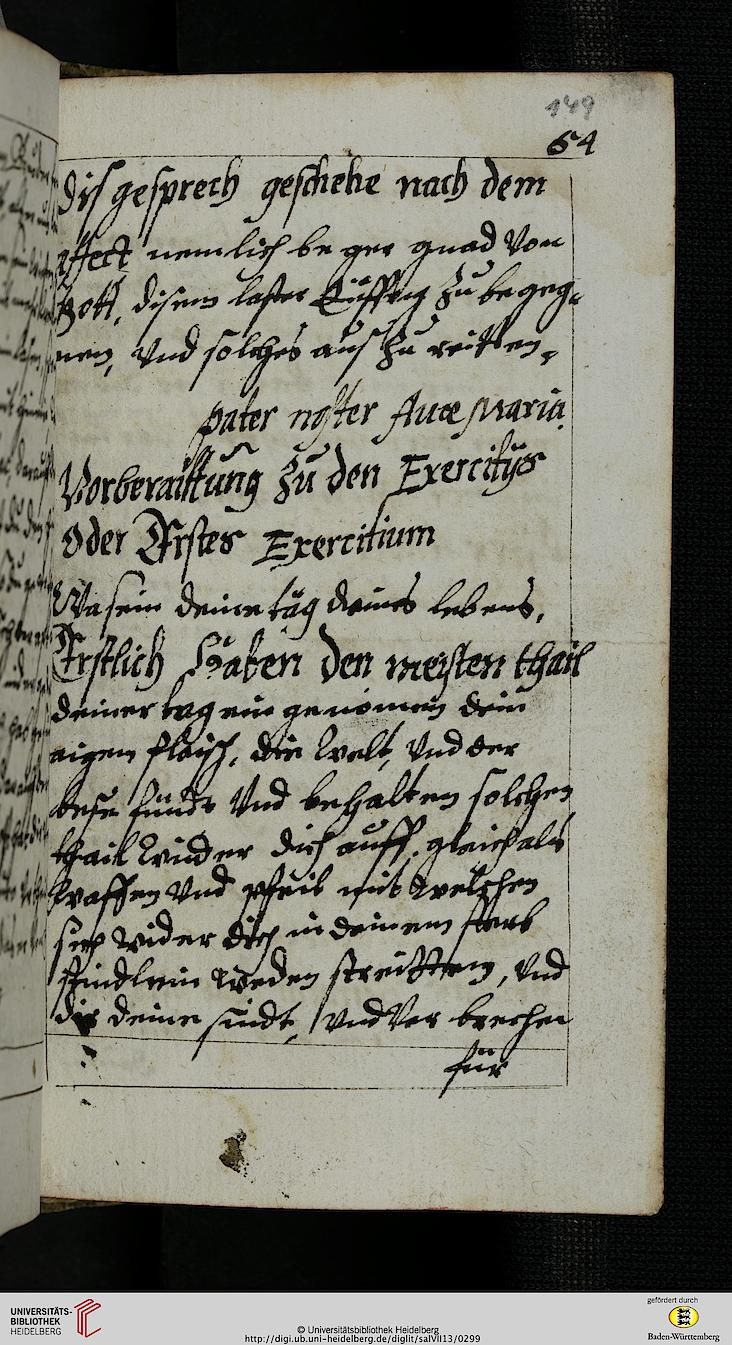 149
64
dis gesprech geschehe nach dem
affect nemlich beger gnad von
Gott, disem laster künfftig zu begeg-
nen, und solches aus zu reitten,
pater noster Aue Maria.
Vorberaittung zu den Exercitijs
Oder Erstes Exercitium
Wa sein deine täg deines lebens,
Erstlich Haben den meisten thail
deiner tag ein genomen dein
aigen flaisch, die welt, und der
bese feindt Und behalten solchen
thail wider dich auff, gleich als
waffen und pfeil mit welchen
sich wider dich in deinem sterb
stindlein werden streitten, und
dir deine sündt, und ver brechen
für
UNIVERSITÄTS-
BIBLIOTHEK
HEIDELBERG
© Universitätsbibliothek Heidelberg
http://digi.ub.uni-heidelberg.de/diglit/salVII13/0299
gefördert durch
Baden-Württemberg